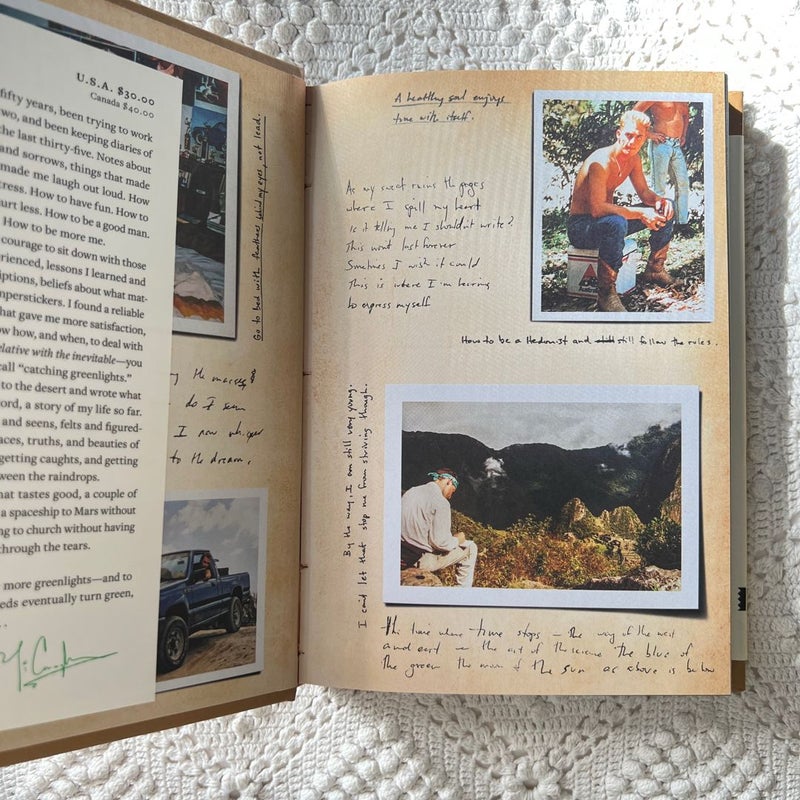 U.S.A. $30.00
Canada $40.00
fifty years, been trying to work
two, and been keeping diaries of
the last thirty-five. Notes about
and sorrows, things that made
made me laugh out loud. How
tress. How to have fun. How to
urt less. How to be a good man.
How to be more me.
courage to sit down with those
erienced, lessons I learned and
iptions, beliefs about what mat-
mperstickers. I found a reliable
that gave me more satisfaction,
ow how, and when, to deal with
elative with the inevitable—you
call “catching greenlights.”
to the desert and wrote what
ord, a story of my life so far.
and seens, felts and figured-
aces, truths, and beauties of
getting caughts, and getting
ween the raindrops.
hat tastes good, a couple of
a spaceship to Mars without
ng to church without having
through the tears.
more greenlights—and to
eds eventually turn green,
Go to bed with feathers behind my eyes, not lead.
my the masses
do I seem
I now whisper
to the dream,
A healthy soul enjoys
time with itself.
As my sweat ruins the pages
where I spill my heart
Is it telling me I shouldn't write?
This wont last forever
Sometimes I wish it could
This is where I'm learning
to express myself
How to be a Hedonist and still follow the rules.
By the way, I am still very young.
I cant let that stop me from striving though.
The time when time stops - the way of the west
and east the art of the science the blue of
the green the moon of the sun as above is below